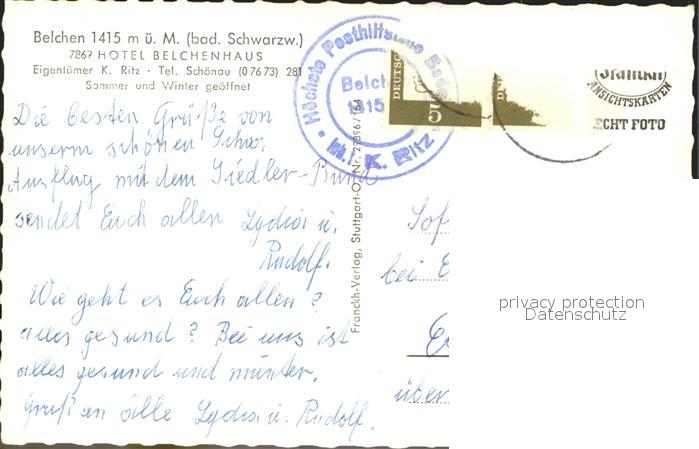 Belchen 1415 m ü. M. (bad. Schwarzw.)
7869 HOTEL BELCHENHAUS
Eigentümer K. Ritz · Tel. Schönau (07673) 281
Sommer und Winter geöffnet
Die besten Grüße von
unserm schönen
Ausflug mit dem Siedler-Bund
sendet Euch allen Lydia u.
Rudolf.
Wie geht es Euch allen?
alles gesund? Bei uns ist
alles gesund und munter.
Gruß an alle Lydia u. Rudolf.
Höchste Posthilfstelle
Belch
1415
Inh. K. Ritz
DEUTSC
5
Franckh-Verlag, Stuttgart-O, Nr. 29896/164
ANSICHTSKARTEN
ECHT FOTO
bei
über
privacy protection
Datenschutz